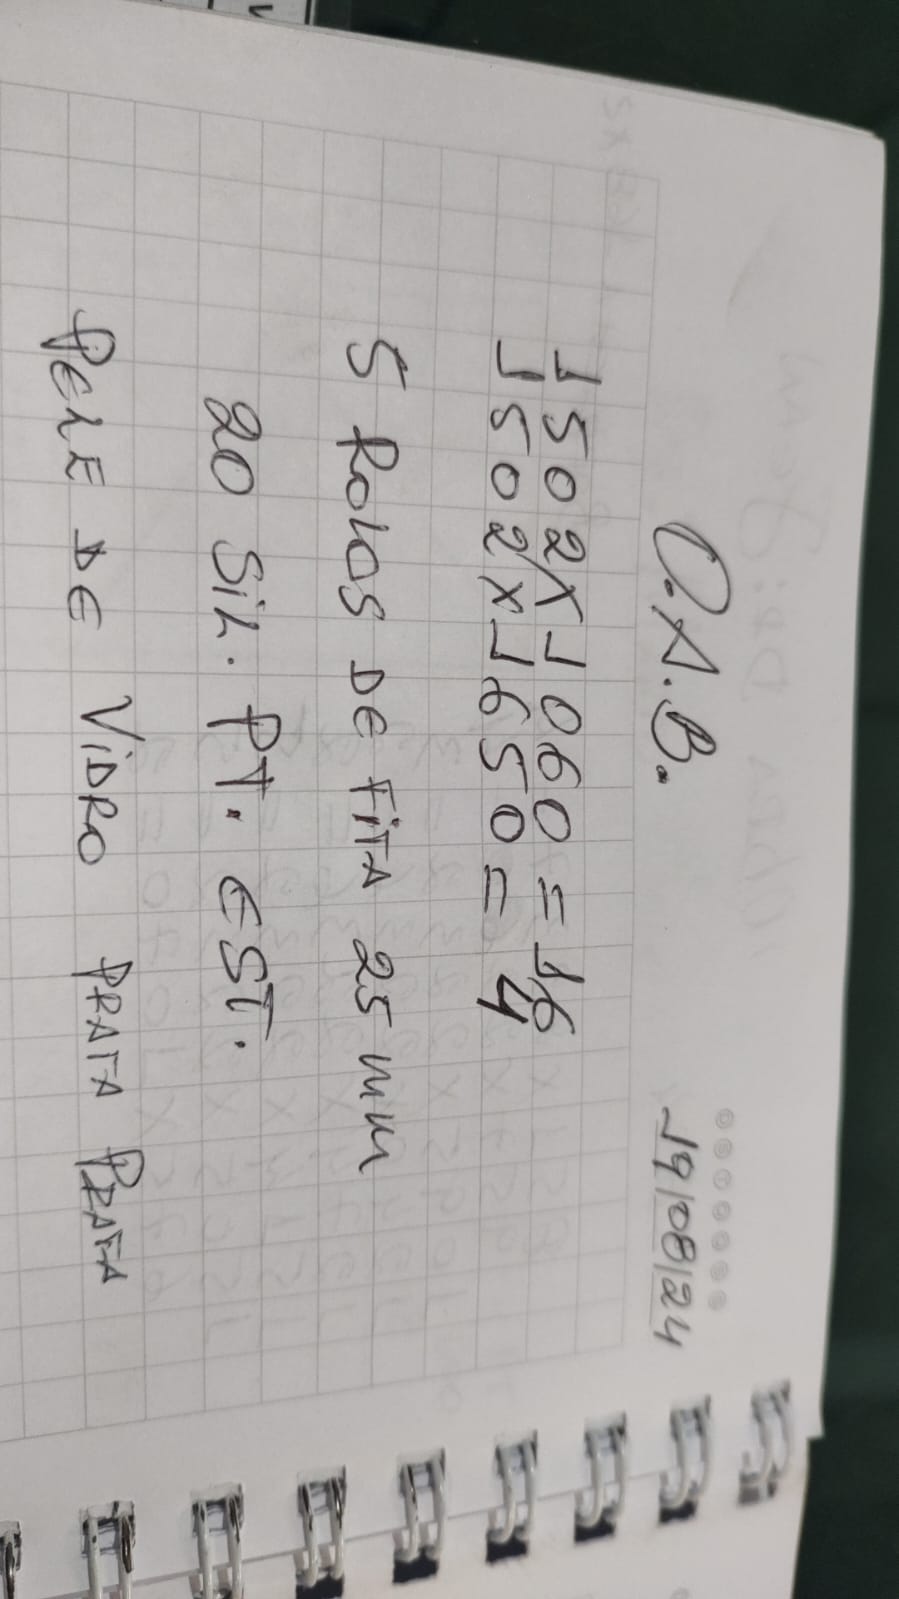 O.A.B. 19/08/24
1502x1060=16
1502x1650=4
5 ROLOS DE FITA 25 mm
20 SiL. PT. EST.
PELE DE ViDRO PRATA PRATA